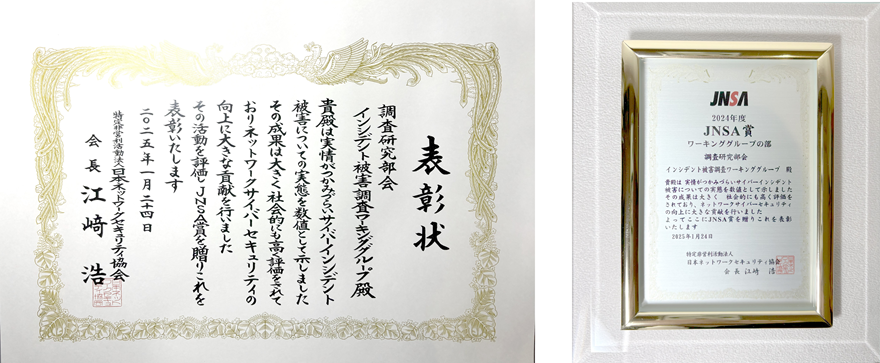 表彰状
調査研究部会
インシデント被害調査ワーキンググループ 殿
貴殿は実情がつかみづらいサイバーインシデント
被害についての実態を数値として示しました
その成果は大きく社会的にも高く評価をされて
おりネットワークサイバーセキュリティの
向上に大きな貢献を行ないました
その活動を評価しJNSA賞を贈りこれを
表彰いたします
二〇二五年一月二十四日
特定非営利活動法人日本ネットワークセキュリティ協会
会長 江﨑 浩
JNSA
2024年度
JNSA賞
ワーキンググループの部
調査研究部会
インシデント被害調査ワーキンググループ 殿
貴殿は 実情がつかみづらいサイバーインシデント
被害についての実態を数値として示しました
その成果は大きく 社会的にも高く評価を
されており、ネットワークサイバーセキュリティ
の向上に大きな貢献を行いました
よってここにJNSA賞を贈りこれを表彰
いたします
2025年1月24日
特定非営利活動法人
日本ネットワークセキュリティ協会
会長 江﨑 浩